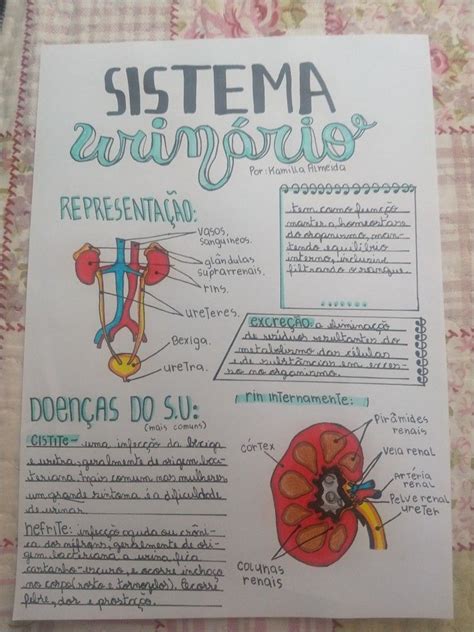 SISTEMA
urinário
Por: Kamilla Almeida
REPRESENTAÇÃO:
vasos
sanguíneos.
glândulas
suprarrenais.
rins.
ureteres.
Bexiga.
uretra.
tem como função
manter a homeostase
do organismo, man-
tendo equilíbrio
interno, inclusive
filtrando o sangue.
excreção: a eliminação
de resíduos resultantes do
metabolismo das células
e de substâncias em exces-
so no organismo.
DOENÇAS DO S.U:
(mais comuns)
CISTITE- uma infecção da bexiga
e uretra, geralmente de origem bac-
teriana, mais comum nas mulheres
um grande sintoma é a dificuldade
de urinar.
nefrite: infecção aguda ou crôni-
ca dos néfrons, geralmente de ori-
gem bacteriana a urina fica
castanho-escuro, e ocorre inchaço
no corpo (rosto e tornozelos). Ocorre
febre, dor e prostação.
rin internamente:
córtex
Pirâmides
renais
veia renal
Artéria
renal
Pelve renal
ureter
colunas
renais